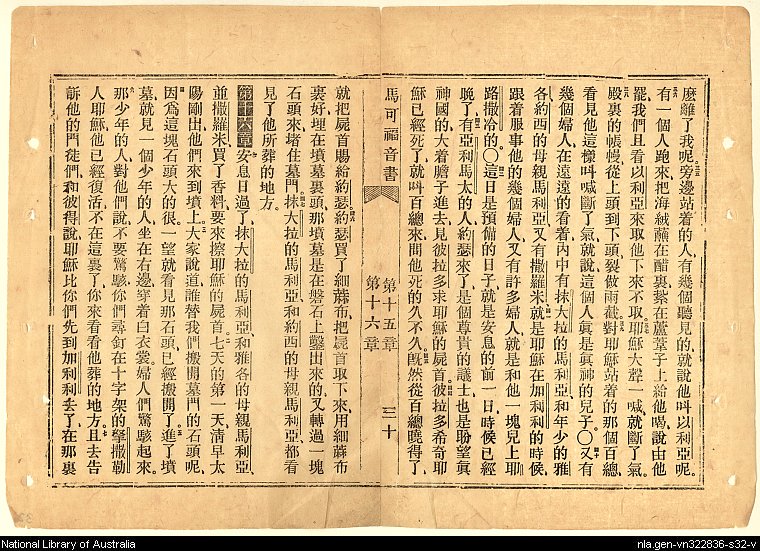 麽離了我呢旁邊站着的人有幾個聽見的就說他呌以利亞呢
有一個人跑來把海絨蘸在醋裏紮在蘆葦子上給他喝說由他
罷我們且看以利亞來取他下來不取耶穌大聲一喊就斷了氣
殿裏的帳幔從上頭到下頭裂做兩截對耶穌站着的那個百總
看見他這樣呌喊斷了氣就說這個人眞是眞神的兒子〇又有
幾個婦人在遠遠的看着內中有抹大拉的馬利亞和年少的雅
各約西的母親馬利亞又有撒羅米就是耶穌在加利利的時候
跟着服事他的幾個婦人又有許多婦人就是和他一塊兒上耶
路撒冷的〇這日是預備的日子就是安息的前一日時候已經
晚了有亞利馬太的人約瑟來了是個尊貴的議士也是盼望眞
神國的大着膽子進去見彼拉多求耶穌的屍首彼拉多希奇耶
穌已經死了就呌百總來問他死的久不久旣然從百總曉得了
馬可福音書 第十五章 第十六章 三十
就把屍首賜給約瑟約瑟買了細蔴布把屍首取下來用細蔴布
裹好埋在墳墓裏頭那墳墓是在磐石上鑿出來的又轉過一塊
石頭來堵住墓門抹大拉的馬利亞和約西的母親馬利亞都看
見了他所葬的地方
第十六章安息日過了抹大拉的馬利亞和雅各的母親馬利亞
並撒羅米買了香料要來擦耶穌的屍首七天的第一天淸早太
陽剛出他們來到墳上大家說道誰替我們搬開墓門的石頭呢
因爲這塊石頭大的很一望就看見那石頭已經搬開了進了墳
墓就見一個少年的人坐在右邊穿着白衣裳婦人們驚駭起來
那少年的人對他們說不要驚駭你們尋釘在十字架的拏撒勒
人耶穌他已經復活不在這裏了你來看看他葬的地方且去告
訴他的門徒們和彼得說耶穌比你們先到加利利去了在那裏
National Library of Australia
nla.gen-vn322836-s32-v